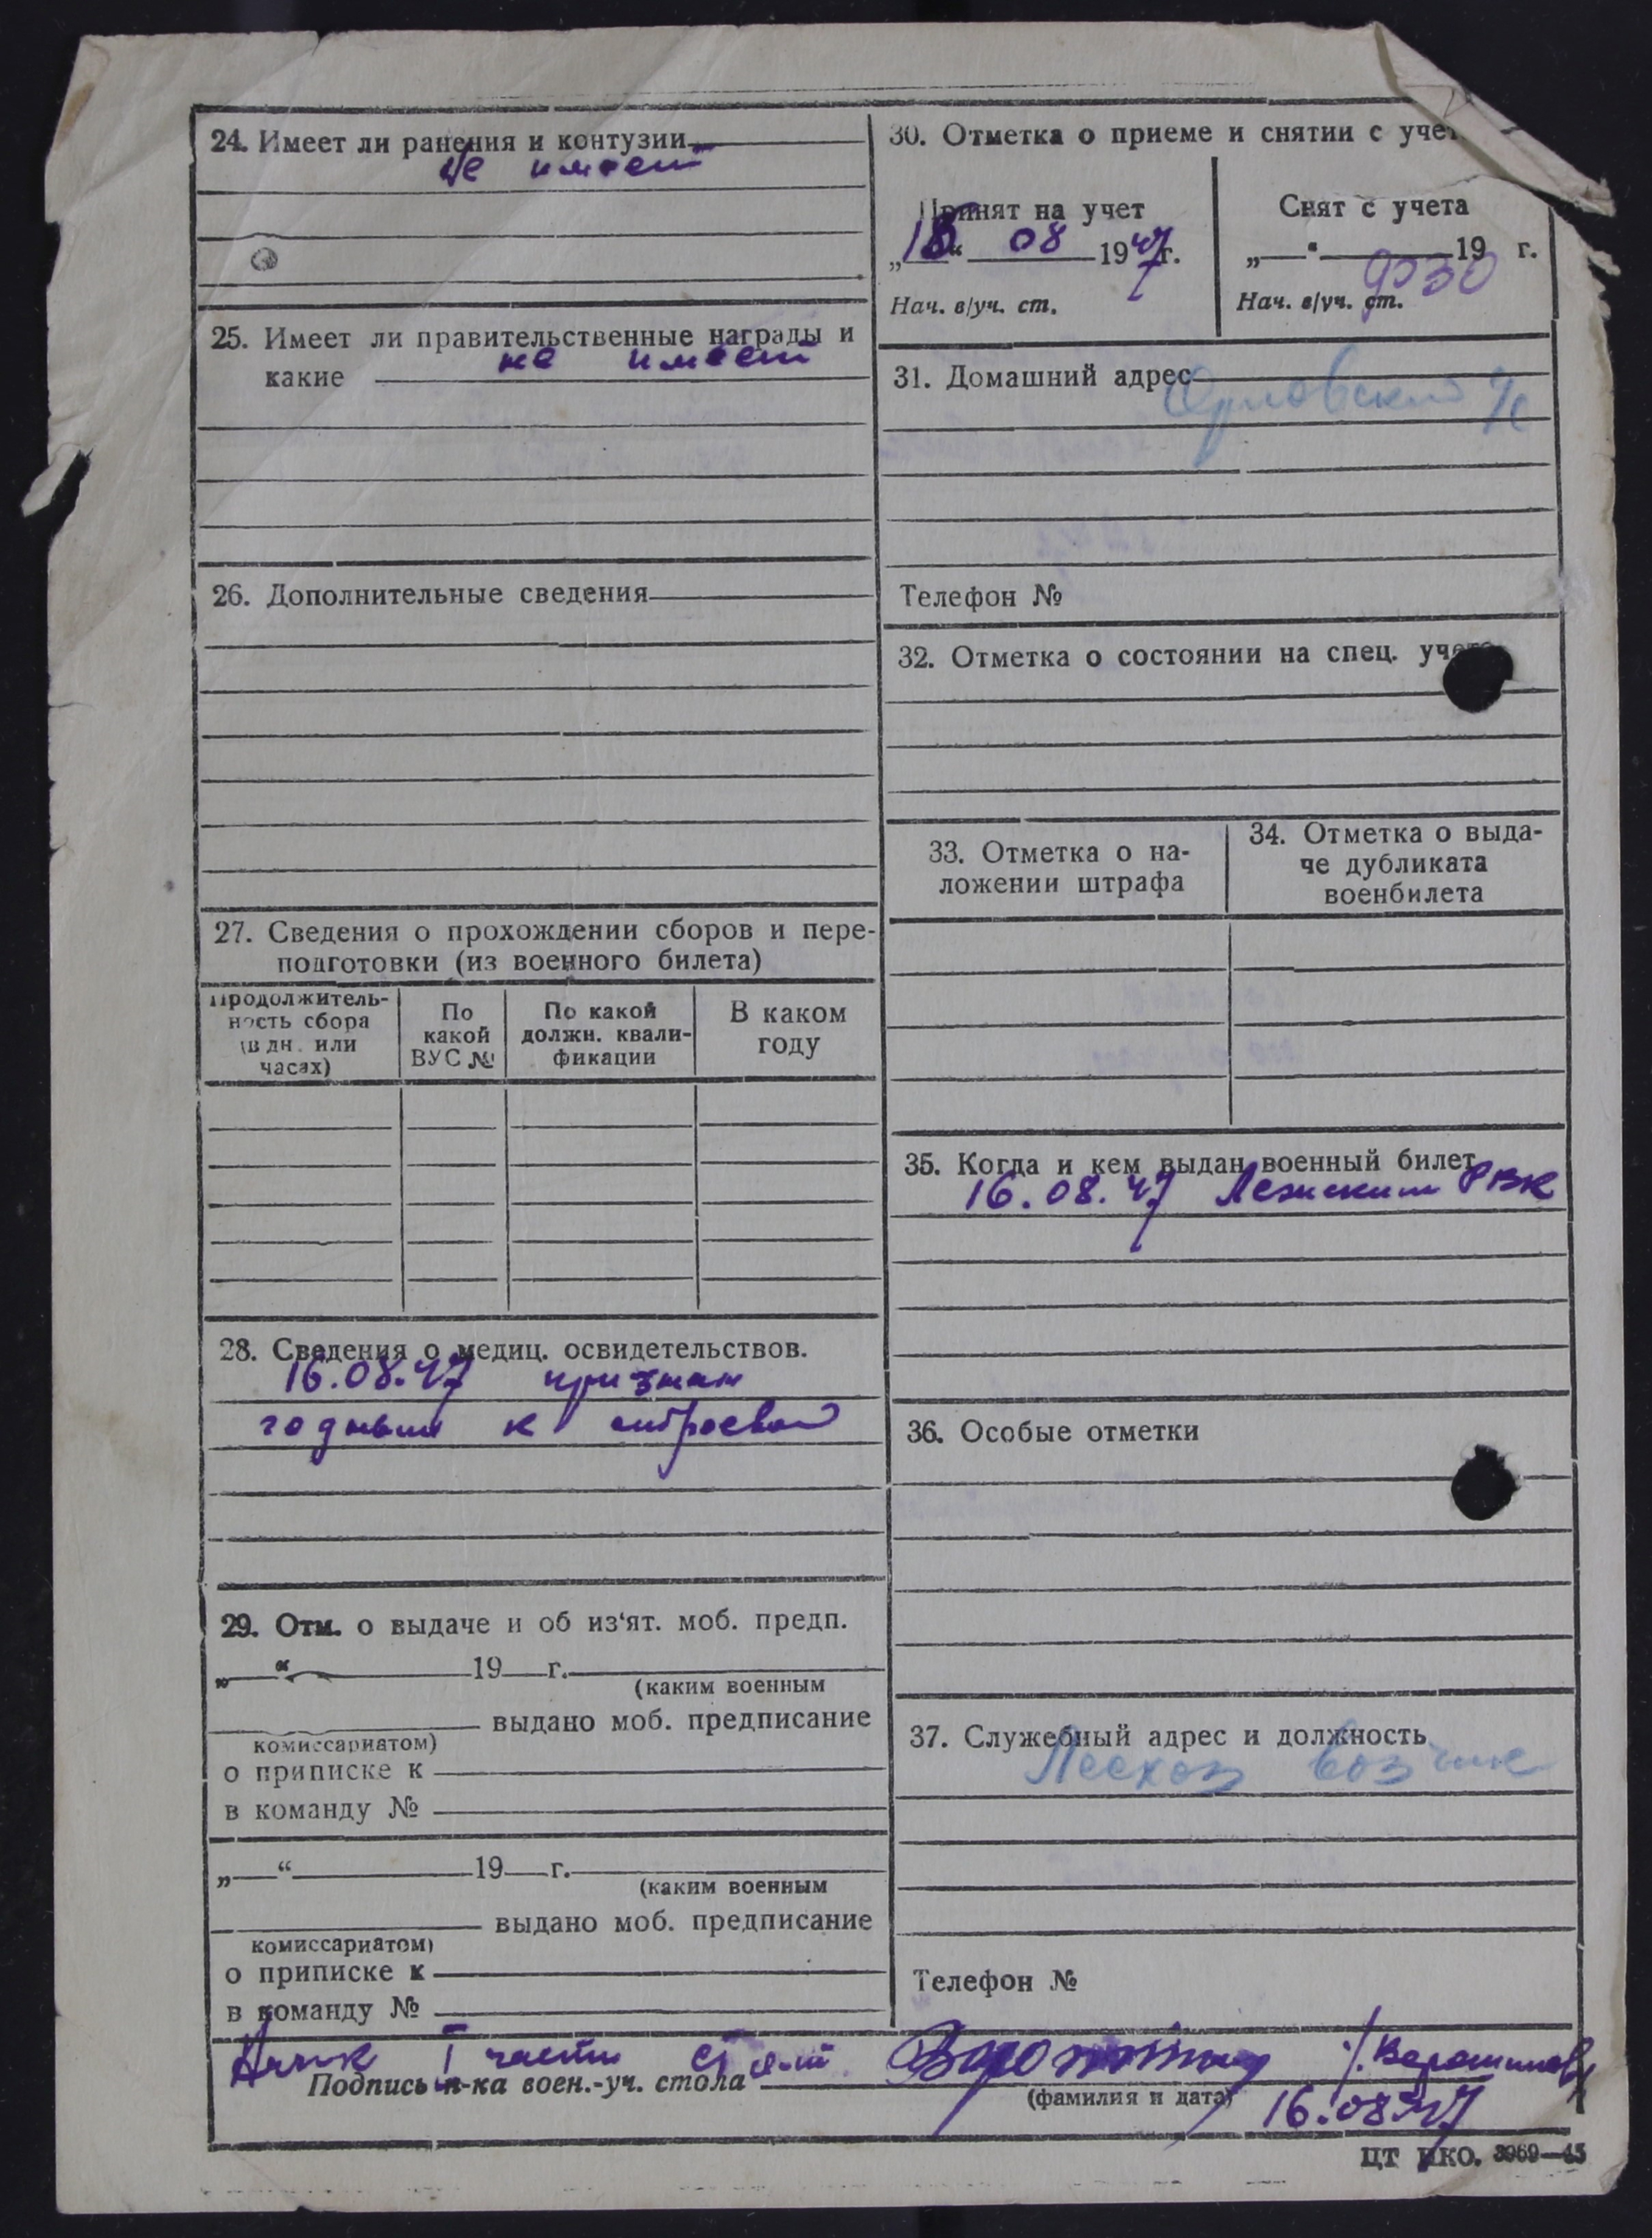 24. Имеет ли ранения и контузии
не имеет
25. Имеет ли правительственные награды и
какие не имеет
26. Дополнительные сведения
27. Сведения о прохождении сборов и пере-
подготовки (из военного билета)
Продолжитель-
ность сбора
(в дн. или
часах)
По
какой
ВУС №
По какой
должн. квали-
фикации
В каком
году
28. Сведения о медиц. освидетельствов.
16.08.47 признан
годным к строевой
29. Отм. о выдаче и об из‘ят. моб. предп.
„ “ 19 г.
(каким военным
выдано моб. предписание
комиссариатом)
о приписке к
в команду №
„ “ 19 г.
(каким военным
выдано моб. предписание
комиссариатом)
о приписке к
в команду №
30. Отметка о приеме и снятии с учет
Принят на учет
„ “ 08 1947г.
Нач. в/уч. ст.
Снят с учета
„ “ 19 г.
Нач. в/уч. ст.
31. Домашний адрес
Орловский
Телефон №
32. Отметка о состоянии на спец. учете
33. Отметка о на-
ложении штрафа
34. Отметка о выда-
че дубликата
военбилета
35. Когда и кем выдан военный билет
16.08.47 РВК
36. Особые отметки
37. Служебный адрес и должность
Лесхоз возчик
Телефон №
I части
Подпись н-ка воен.-уч. стола
(фамилия и дата)
16.08.47
ЦТ НКО. 3969—45